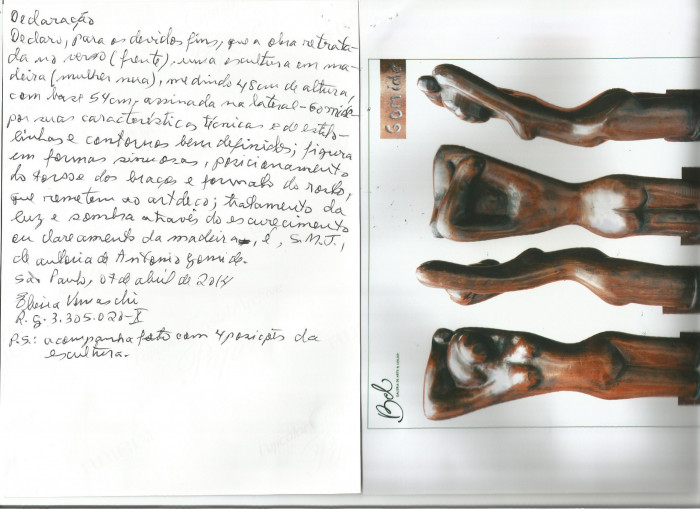 Declaração
Declaro, para os devidos fins, que a obra retrata-
da no verso (frente), uma escultura em ma-
deira (mulher nua), medindo 48cm de altura,
com base 54cm, assinada na lateral - Gomide
por suas características técnicas e de estilo-
linhas e contornos bem definidos; figura
em formas sinuosas, posicionamento
do torso e dos braços e formato do rosto,
que remetem ao art deco; tratamento da
luz e sombra através do escurecimento
ou clareamento da madeira, é, S.M.J.,
de autoria de Antonio Gomide.
São Paulo, 07 de abril de 2014
R.G. 3.305.020-X
P.S.: acompanha foto com 4 posições da
escultura.
Gomide
Bol